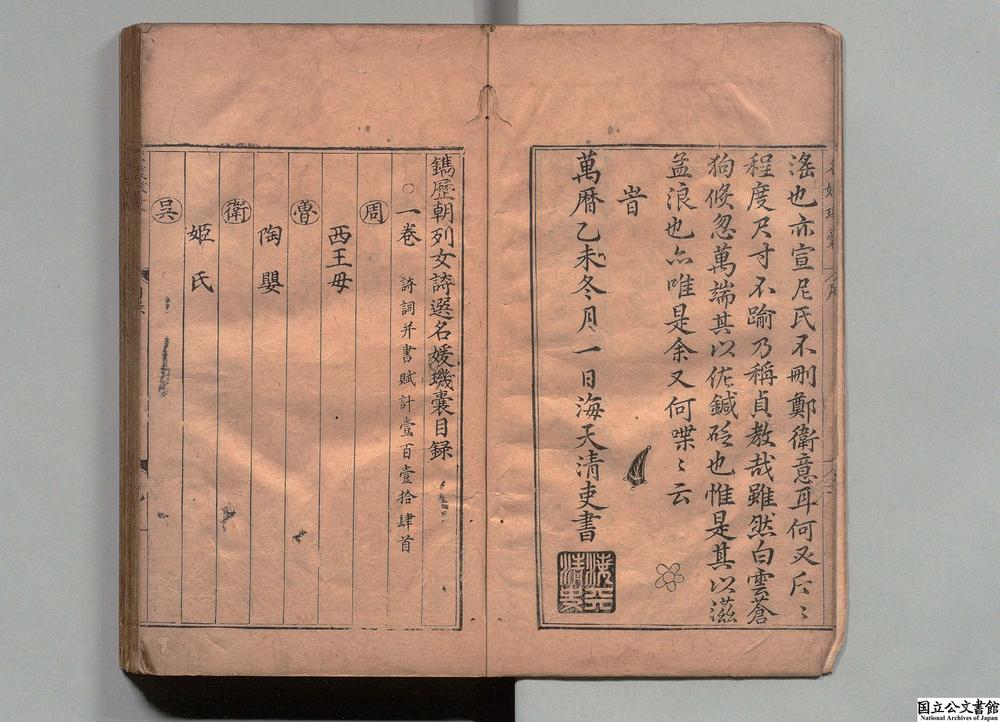 滛也亦宣尼氏不刪鄭衛意耳何又斥〻
程度尺寸不踰乃稱貞教哉雖然白雲蒼
狗倐忽萬端其以佐鍼砭也惟是其以滋
孟浪也亦唯是余又何喋〻云
旹
萬曆乙未冬月一日海天清吏書
鐫歷朝列女詩選名媛璣囊目録
○一卷 詩詞并書賦計壹百壹拾肆首
周
西王母
魯
陶嬰
衛
姬氏
吳
国立公文書館
National Archives of Japan